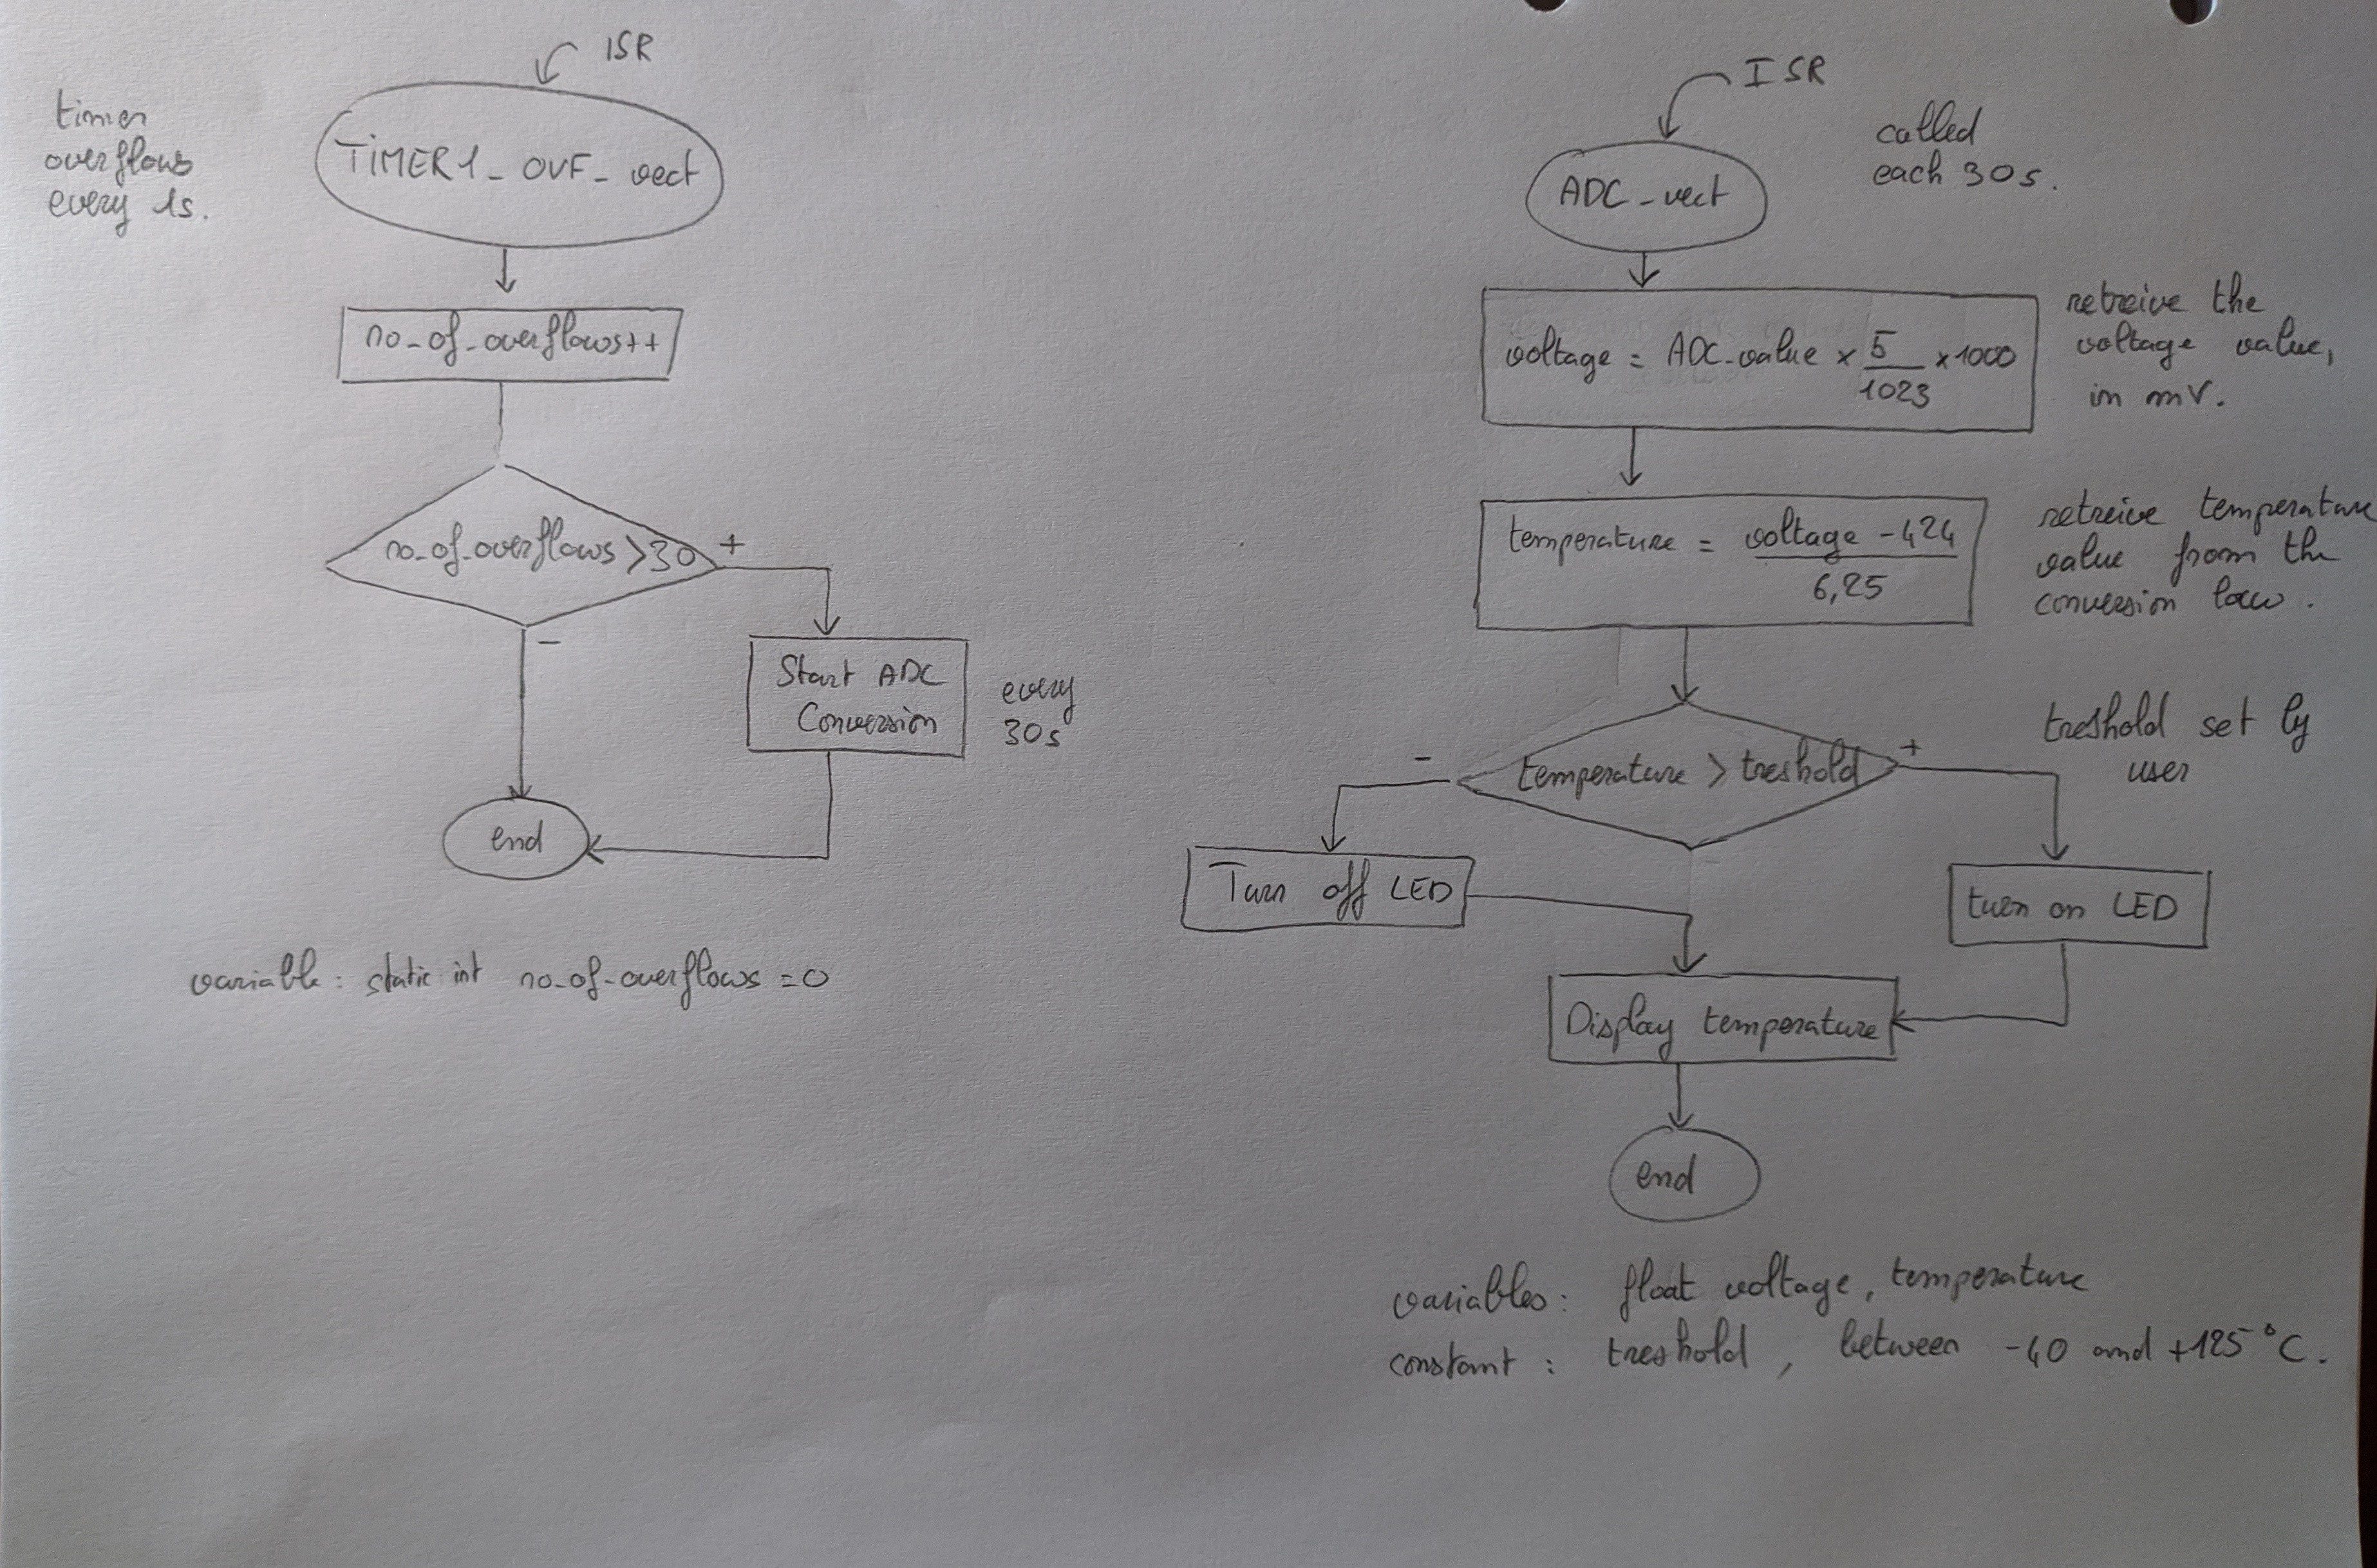 ISR
timer
overflows
every 1s.
TIMER1_OVF_vect
no_of_overflows++
no_of_overflows >30
+
-
Start ADC
Conversion
every
30s
end
variable: static int no_of_overflows =0
ISR
called
each 30s.
ADC_vect
voltage = ADC_value × 5/1023 ×1000
retreive the
voltage value,
in mV.
temperature = voltage -424 / 6,25
retreive temperature
value from the
conversion law.
temperature > treshold
-
+
treshold set by
user
Turn off LED
turn on LED
Display temperature
end
variables: float voltage, temperature
constant: treshold, between -40 and +125°C.